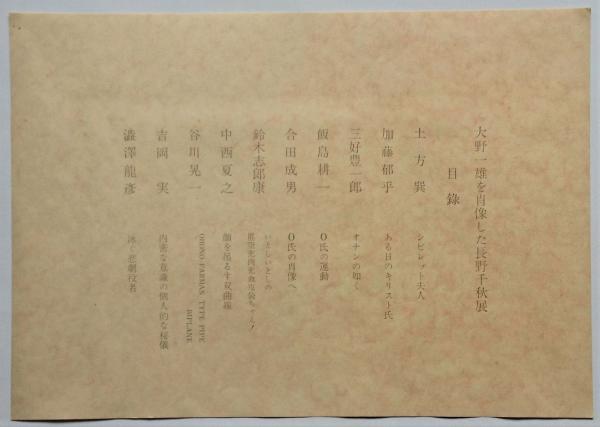 大野一雄を肖像した長野千秋展
目録
土方巽 シビレット夫人
加藤郁乎 ある日のキリスト氏
三好豊一郎 オナンの如く
飯島耕一 O氏の運動
合田成男 O氏の肖像へ
鈴木志郎康 いとしいとしの
中西夏之 顔を吊る生双曲線
谷川晃一 OHONO-FARMAN TYPE PIPE BIPLANE
吉岡実 内密な意識の個人的な秘儀
澁澤龍彦 泳ぐ悲劇役者